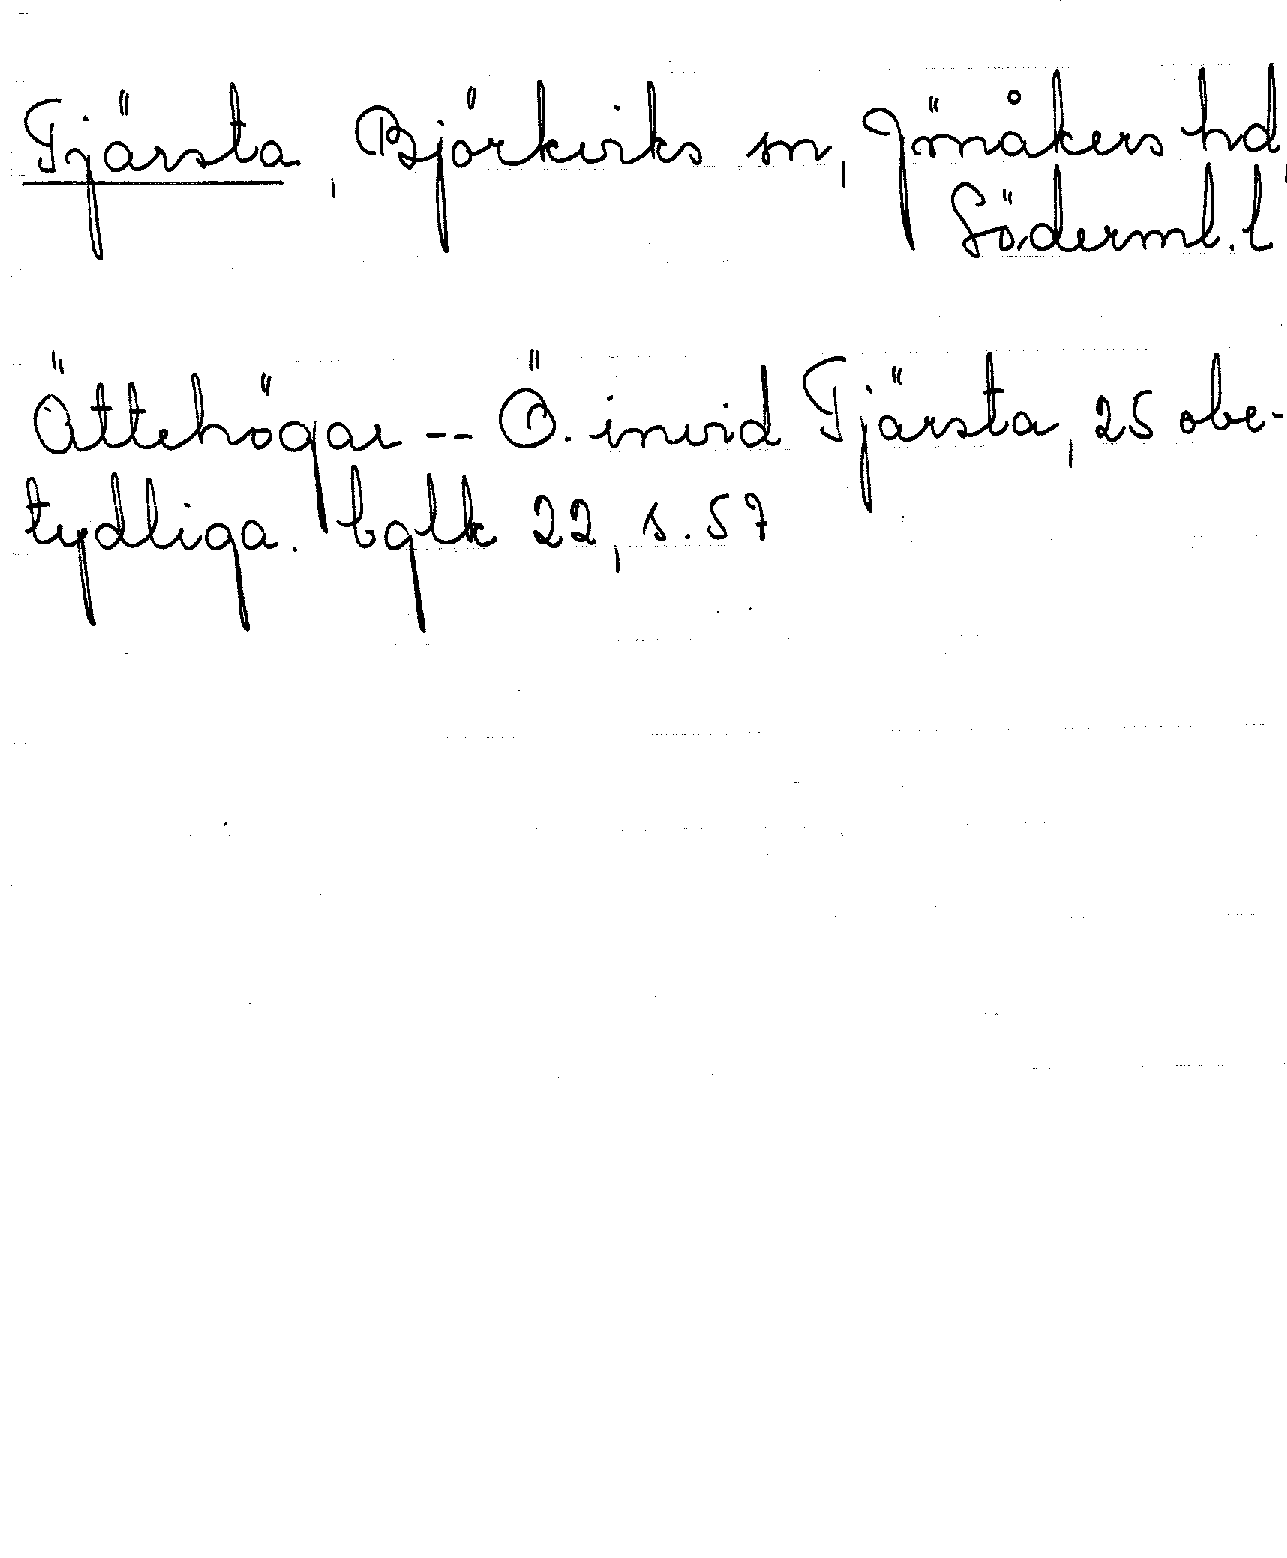 Tjärsta, Björkviks sn, Jönåkers hd,
Söderml. l
Ättehögar -- Ö. invid Tjärsta, 25 obe-
tydliga. bglk 22, s. 57